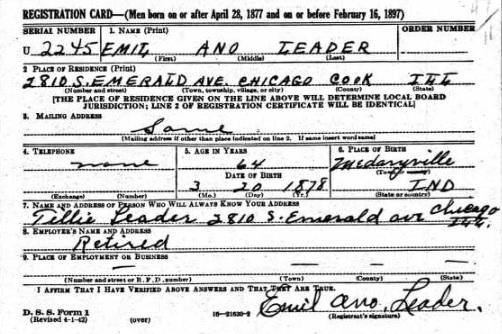 REGISTRATION CARD—(Men born on or after April 28, 1877 and on or before February 16, 1897)
SERIAL NUMBER 1. NAME (Print) ORDER NUMBER
U 2245 EMIL ANO LEADER
(First) (Middle) (Last)
2 PLACE OF RESIDENCE (Print)
2810 S. EMERALD AVE. CHICAGO COOK ILL
(Number and street) (Town, township, village, or city) (County) (State)
[THE PLACE OF RESIDENCE GIVEN ON THE LINE ABOVE WILL DETERMINE LOCAL BOARD
JURISDICTION; LINE 2 OF REGISTRATION CERTIFICATE WILL BE IDENTICAL]
3. MAILING ADDRESS
Same
[Mailing address if other than place indicated on line 2. If same insert word same]
4. TELEPHONE 5. AGE IN YEARS 6. PLACE OF BIRTH
none 64 Medaryville
DATE OF BIRTH
3 20 1878 IND
(Exchange) (Number) (Mo.) (Day) (Yr.) (State or country)
7. NAME AND ADDRESS OF PERSON WHO WILL ALWAYS KNOW YOUR ADDRESS
Tillie Leader 2810 S. Emerald ave Chicago
Ill.
8. EMPLOYER'S NAME AND ADDRESS
Retired
9. PLACE OF EMPLOYMENT OR BUSINESS
— — — —
(Number and street or R. F. D. number) (Town) (County) (State)
I AFFIRM THAT I HAVE VERIFIED ABOVE ANSWERS AND THAT THEY ARE TRUE.
D. S. S. Form 1
(Revised 4-1-42) (over) 16—21630-2 Emil Ano. Leader.
(Registrant's signature)